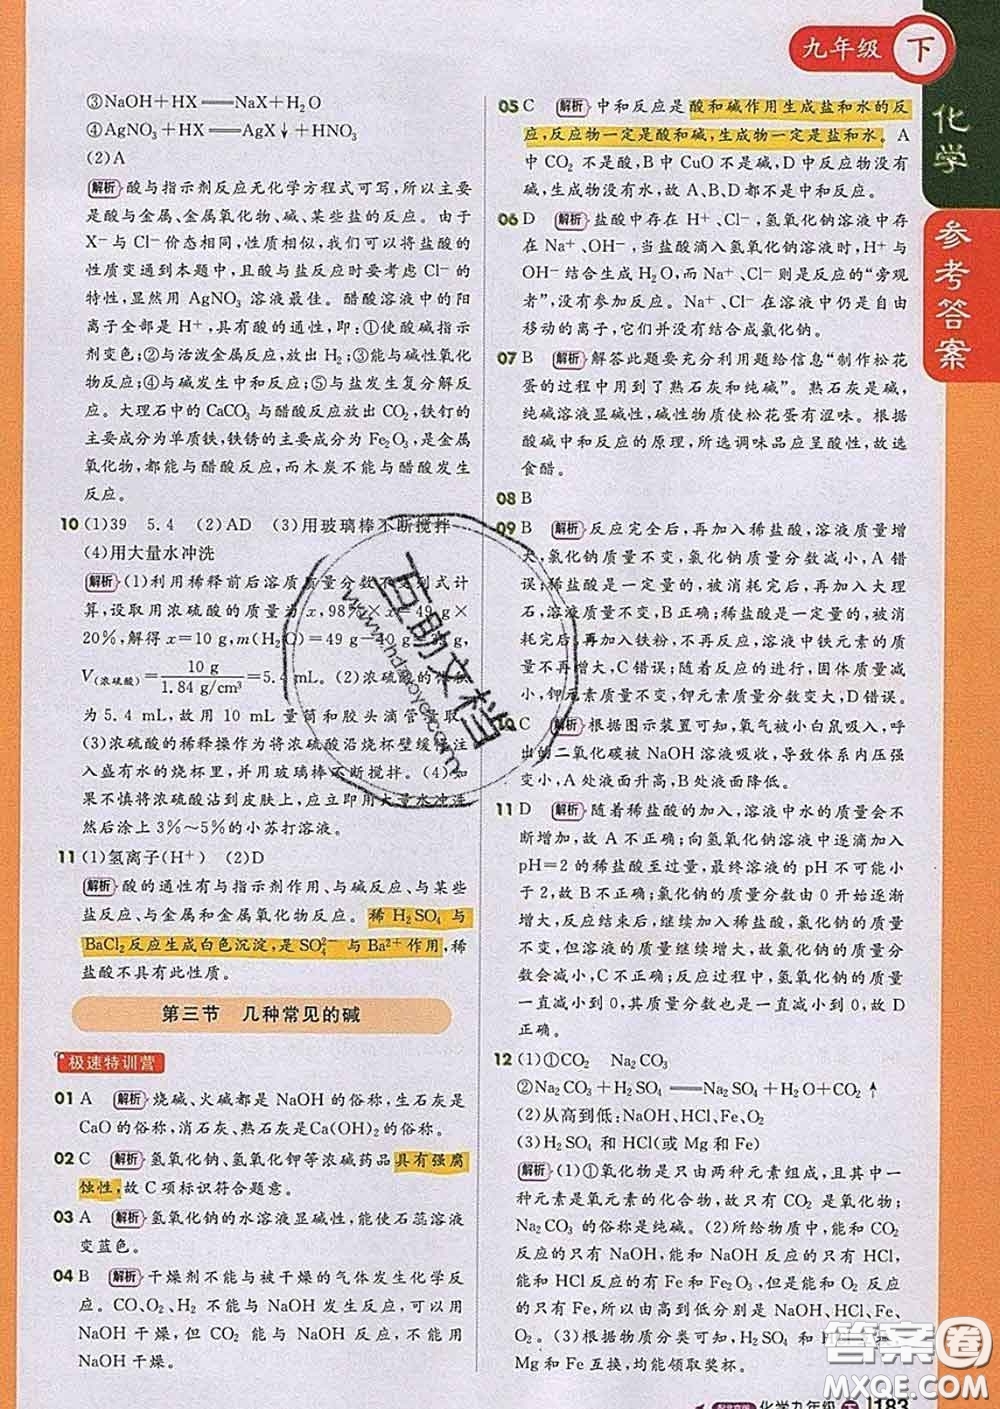 九年级 下
化学
参考答案
③NaOH+HX══NaX+H₂O
④AgNO₃+HX══AgX↓+HNO₃
(2)A
解析 酸与指示剂反应无化学方程式可写,所以主要
是酸与金属、金属氧化物、碱、某些盐的反应。由于
X⁻与Cl⁻价态相同,性质相似,我们可以将盐酸的
性质变通到本题中,且酸与盐反应时要考虑Cl⁻的
特性,显然用AgNO₃溶液最佳。醋酸溶液中的阳
离子全部是H⁺,具有酸的通性,即:①使酸碱指示
剂变色;②与活泼金属反应,放出H₂;③能与碱性氧化
物反应;④与碱发生中和反应;⑤与盐发生复分解反
应。大理石中的CaCO₃与醋酸反应放出CO₂,铁钉的
主要成分为单质铁,铁锈的主要成分为Fe₂O₃,是金属
氧化物,都能与醋酸反应,而木炭不能与醋酸发生
反应。
10 (1)39 5.4 (2)AD (3)用玻璃棒不断搅拌
(4)用大量水冲洗
解析 (1)利用稀释前后溶质质量分数不变列式计
算,设取用浓硫酸的质量为x,98%×x=49 g×
20%,解得x=10 g,m(H₂O)=49 g-10 g=39 g,
V(浓硫酸)=10 g/1.84 g/cm³=5.4 mL。(2)浓硫酸的体积
为5.4 mL,故用10 mL量筒和胶头滴管量取。
(3)浓硫酸的稀释操作为将浓硫酸沿烧杯壁缓慢注
入盛有水的烧杯里,并用玻璃棒不断搅拌。(4)如
果不慎将浓硫酸沾到皮肤上,应立即用大量水冲洗,
然后涂上3%~5%的小苏打溶液。
11 (1)氢离子(H⁺) (2)D
解析 酸的通性有与指示剂作用、与碱反应、与某些
盐反应、与金属和金属氧化物反应。稀H₂SO₄与
BaCl₂反应生成白色沉淀,是SO₄²⁻与Ba²⁺作用,稀
盐酸不具有此性质。
第三节 几种常见的碱
极速特训营
01 A 解析 烧碱、火碱都是NaOH的俗称,生石灰是
CaO的俗称,消石灰、熟石灰是Ca(OH)₂的俗称。
02 C 解析 氢氧化钠、氢氧化钾等浓碱药品具有强腐
蚀性,故C项标识符合题意。
03 A 解析 氢氧化钠的水溶液显碱性,能使石蕊溶液
变蓝色。
04 B 解析 干燥剂不能与被干燥的气体发生化学反
应。CO、O₂、H₂不能与NaOH发生反应,可以用
NaOH干燥,但CO₂能与NaOH反应,不能用
NaOH干燥。
05 C 解析 中和反应是酸和碱作用生成盐和水的反
应,反应物一定是酸和碱,生成物一定是盐和水。A
中CO₂不是酸,B中CuO不是碱,D中反应物没有
碱,生成物没有水,故A、B、D都不是中和反应。
06 D 解析 盐酸中存在H⁺、Cl⁻,氢氧化钠溶液中存
在Na⁺、OH⁻,当盐酸滴入氢氧化钠溶液时,H⁺与
OH⁻结合生成H₂O,而Na⁺、Cl⁻则是反应的“旁观
者”,没有参加反应。Na⁺、Cl⁻在溶液中仍是自由
移动的离子,它们并没有结合成氯化钠。
07 B 解析 解答此题要充分利用题给信息“制作松花
蛋的过程中用到了熟石灰和纯碱”。熟石灰是碱,
纯碱溶液显碱性,碱性物质使松花蛋有涩味。根据
酸碱中和反应的原理,所选调味品应呈酸性,故选
食醋。
08 B
09 B 解析 反应完全后,再加入稀盐酸,溶液质量增
大,氯化钠质量不变,氯化钠质量分数减小,A错
误;稀盐酸是一定量的,被消耗完后,再加入大理
石,溶液质量不变,B正确;稀盐酸是一定量的,被消
耗完后,再加入铁粉,不再反应,溶液中铁元素的质
量不变,C错误;随着反应的进行,固体质量
减小,钾元素质量不变,钾元素质量分数变大,D错误。
10 C 解析 根据图示装置可知,氧气被小白鼠吸入,呼
出的二氧化碳被NaOH溶液吸收,导致体系内压强
变小,A处液面升高,B处液面降低。
11 D 解析 随着稀盐酸的加入,溶液中水的质量会不
断增加,故A不正确;向氢氧化钠溶液中逐滴加入
pH=2的稀盐酸至过量,最终溶液的pH不可能小
于2,故B不正确;氯化钠的质量分数由0开始逐渐
增大,反应结束后,继续加入稀盐酸,氯化钠的质量
不变,但溶液的质量继续增大,故氯化钠的质量分
数会减小,故C不正确;反应过程中,氢氧化钠的质量
一直减小到0,其质量分数也是一直减小到0,故D
正确。
12 (1)①CO₂ Na₂CO₃
②Na₂CO₃+H₂SO₄══Na₂SO₄+H₂O+CO₂↑
(2)从高到低:NaOH、HCl、Fe、O₂
(3)H₂SO₄和HCl(或Mg和Fe)
解析 (1)①氧化物是只由两种元素组成,且其中一
种元素是氧元素的化合物,故只有CO₂是氧化物;
Na₂CO₃的俗称是纯碱。(2)所给物质中,能和CO₂
反应的只有NaOH,能和NaOH反应的只有HCl,
能和HCl反应的有Fe和Fe₂O₃,但是能和O₂反应
的只有Fe,所以由高到低为NaOH、HCl、Fe、
O₂。(3)根据物质分类可知,H₂SO₄和HCl互换,
Mg和Fe互换,均能领取奖杯。
化学九年级 下 183
互助文档
答案圈
MXQE.COM